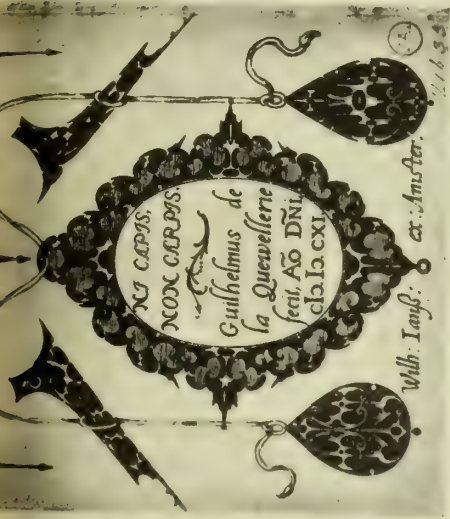 NI CAPIS,
NON CARPIS.
Guilhelmus de
la Quewellerie
fecit, Aō DN̄I,
cIↄ.Iↄ.CXI.
Wilh: Ianß: ex: Amster.